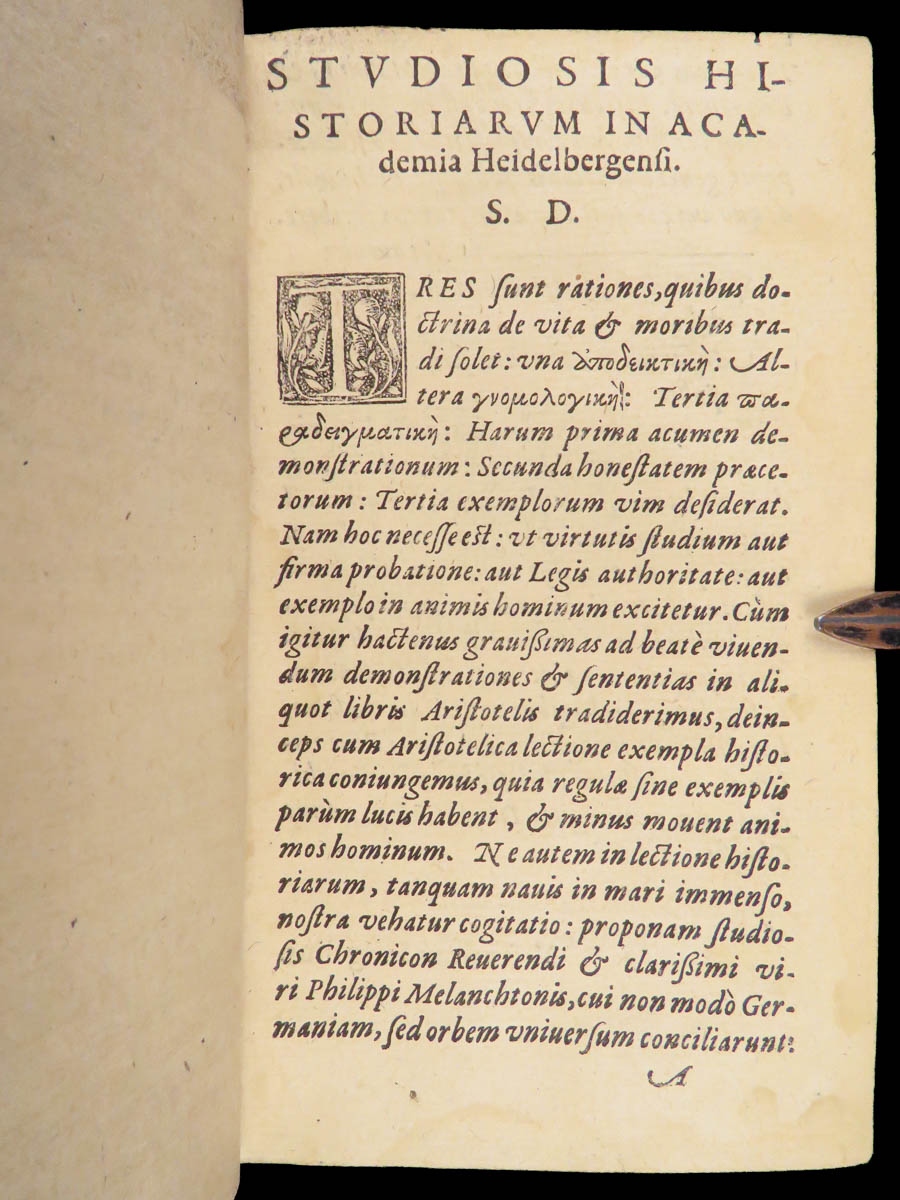 STVDIOSIS HI-
STORIARVM IN ACA-
demia Heidelbergenſi.
S. D.
TRES ſunt rationes, quibus do-
ctrina de vita & moribus tra-
di ſolet: vna ἀποδεικτικὴ: Al-
tera γνομολογικὴ: Tertia πα-
ραδειγματικὴ: Harum prima acumen de-
monſtrationum: Secunda honeſtatem præce-
torum: Tertia exemplorum vim deſiderat.
Nam hoc neceſſe est: vt virtutis ſtudium aut
firma probatione: aut Legis authoritate: aut
exemplo in animis hominum excitetur. Cùm
igitur hactenus grauißimas ad beatè viuen-
dum demonſtrationes & ſententias in ali-
quot libris Ariſtotelis tradiderimus, dein-
ceps cum Ariſtotelica lectione exempla hiſto-
rica coniungemus, quia regulæ ſine exemplis
parùm lucis habent, & minus mouent ani-
mos hominum. Ne autem in lectione hiſto-
riarum, tanquam nauis in mari immenſo,
noſtra vehatur cogitatio: proponam ſtudio-
ſis Chronicon Reuerendi & clarißimi vi-
ri Philippi Melanchtonis, cui non modò Ger-
maniam, ſed orbem vniuerſum conciliarunt:
A